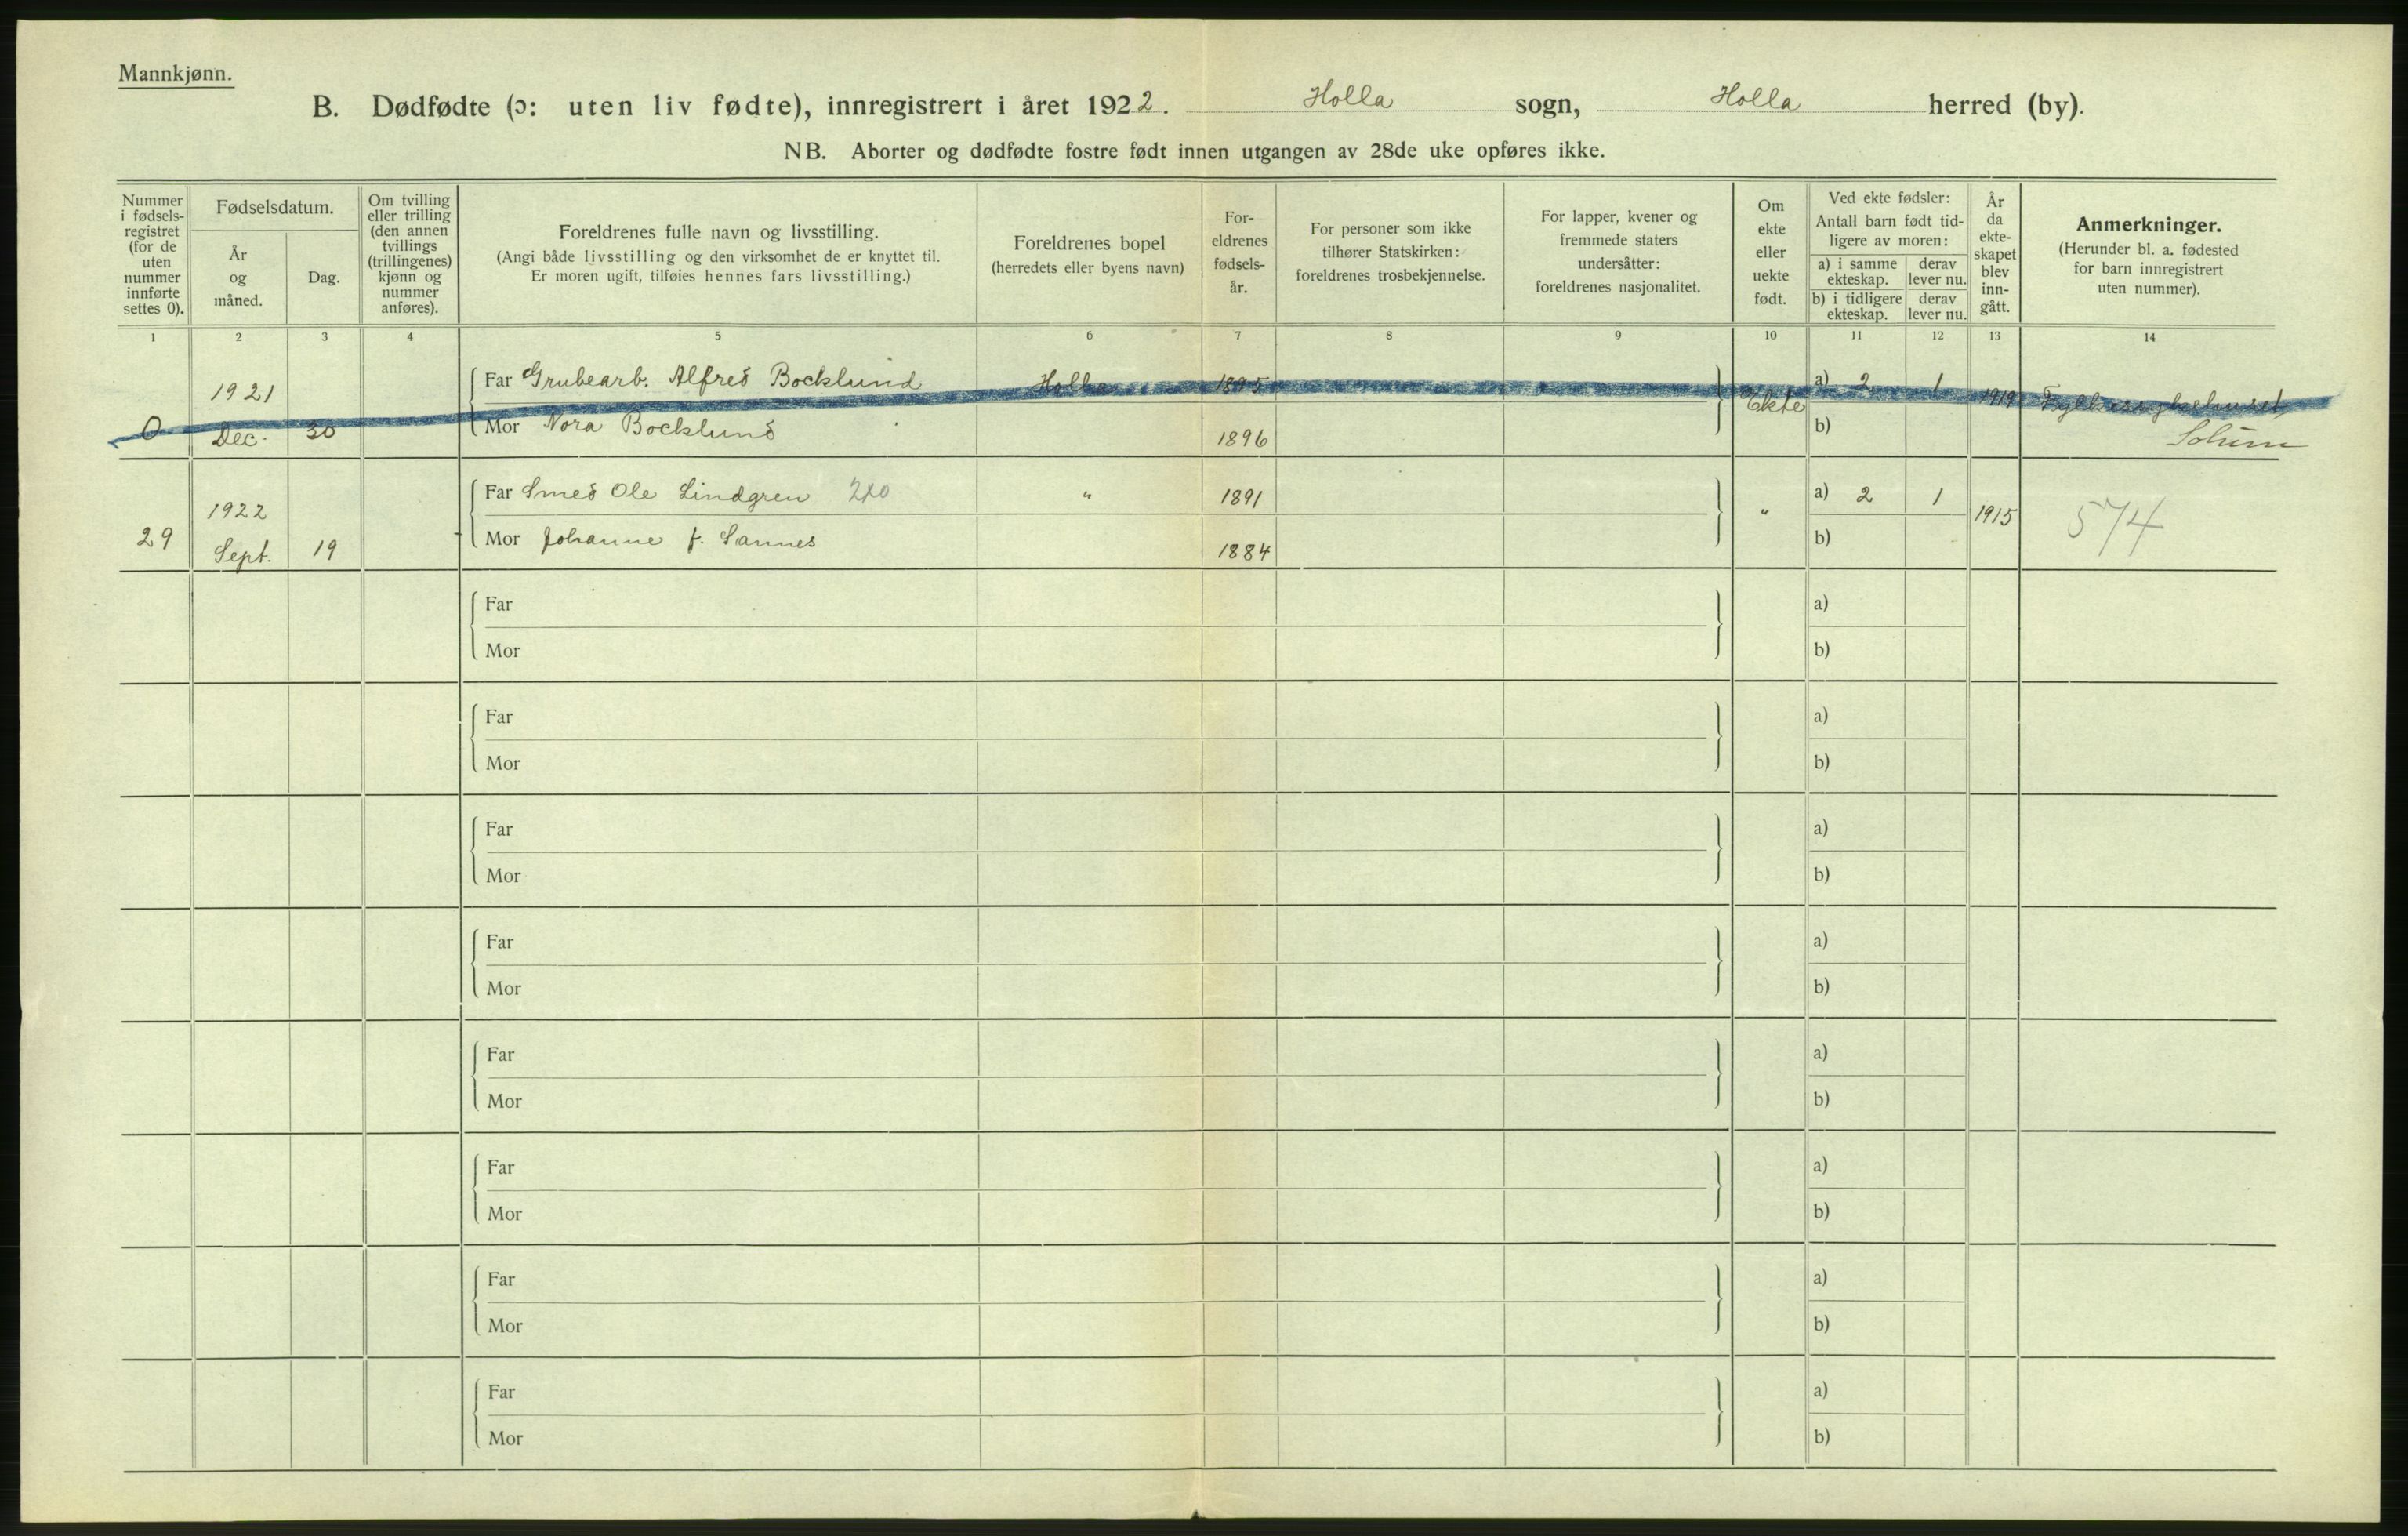 Mannkjønn.
B. Dødfødte (ɔ: uten liv fødte), innregistrert i året 1922. Holla sogn, Holla herred (by).
NB. Aborter og dødfødte fostre født innen utgangen av 28de uke opføres ikke.
Nummer i fødsels-registret (for de uten nummer innførte settes 0).
Fødselsdatum.
År og måned.
Dag.
Om tvilling eller trilling (den annen tvillings (trillingenes) kjønn og nummer anføres).
Foreldrenes fulle navn og livsstilling.
(Angi både livsstilling og den virksomhet de er knyttet til.
Er moren ugift, tilføies hennes fars livsstilling.)
Foreldrenes bopel
(herredets eller byens navn)
For-eldrenes fødsels-år.
For personer som ikke tilhører Statskirken: foreldrenes trosbekjennelse.
For lapper, kvener og fremmede staters undersåtter: foreldrenes nasjonalitet.
Om ekte eller uekte født.
Ved ekte fødsler:
Antall barn født tid-ligere av moren:
a) i samme ekteskap.
derav lever nu.
b) i tidligere ekteskap.
derav lever nu.
År da ekte-skapet blev inn-gått.
Anmerkninger.
(Herunder bl. a. fødested for barn innregistrert uten nummer).
1 2 3 4 5 6 7 8 9 10 11 12 13 14
1921 Far Grubearb. Alfred Bocklund Holla 1895 a) 2 1 1919 Fylkessykehuset,
0 Dec. 30 Mor Nora Bocklund 1896 Ekte b) Solum
1922 Far Smed Ole Lindgren 2x0 " 1891 " a) 2 1 1915 574
29 Sept. 19 Mor Johanne f. Sannes 1884 b)
Far a)
Mor b)
Far a)
Mor b)
Far a)
Mor b)
Far a)
Mor b)
Far a)
Mor b)
Far a)
Mor b)
Far a)
Mor b)
Far a)
Mor b)